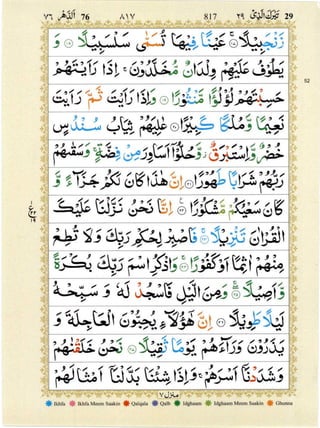 ٧٦ اَلدَّهْر 76 ٨١٧ 817 ٢٩ تَبٰرَكَ الَّذِیْ 29
زَنْجَبِیْلًا ۟ۚ عَیْنًا فِیْهَا تُسَمّٰی سَلْسَبِیْلًا ۟ وَ
یَطُوْفُ عَلَیْهِمْ وِلْدَانٌ مُّخَلَّدُوْنَ ۚ اِذَا رَاَیْتَهُمْ
حَسِبْتَهُمْ لُؤْلُؤًا مَّنْثُوْرًا ۟ وَاِذَا رَاَیْتَ ثَمَّ رَاَیْتَ
نَعِیْمًا وَّمُلْكًا كَبِیْرًا ۟ عٰلِیَهُمْ ثِیَابُ سُنْدُسٍ
خُضْرٌ وَّاِسْتَبْرَقٌ ؗ وَّحُلُّوْۤا اَسَاوِرَ مِنْ فِضَّةٍ ۚ وَسَقٰىهُمْ
رَبُّهُمْ شَرَابًا طَهُوْرًا ۟ اِنَّ هٰذَا كَانَ لَكُمْ جَزَآءً وَّ
كَانَ سَعْیُكُمْ مَّشْكُوْرًا ۟۠ اِنَّا نَحْنُ نَزَّلْنَا عَلَیْكَ
الْقُرْاٰنَ تَنْزِیْلًا ۟ۚ فَاصْبِرْ لِحُكْمِ رَبِّكَ وَلَا تُطِعْ
مِنْهُمْ اٰثِمًا اَوْ كَفُوْرًا ۟ۚ وَاذْكُرِ اسْمَ رَبِّكَ بُكْرَةً
وَّاَصِیْلًا ۟ۖۚ وَمِنَ الَّیْلِ فَاسْجُدْ لَهٗ وَ سَبِّحْهُ
لَیْلًا طَوِیْلًا ۟ اِنَّ هٰۤؤُلَآءِ یُحِبُّوْنَ الْعَاجِلَةَ وَ
یَذَرُوْنَ وَرَآءَهُمْ یَوْمًا ثَقِیْلًا ۟ نَحْنُ خَلَقْنٰهُمْ
وَشَدَدْنَاۤ اَسْرَهُمْ ۚ وَاِذَا شِئْنَا بَدَّلْنَاۤ اَمْثَالَهُمْ
منزل ٧
Ikhfa Ikhfa Meem Saakin Qalqala Qalb Idghaam Idghaam Meem Saakin Ghunna
52